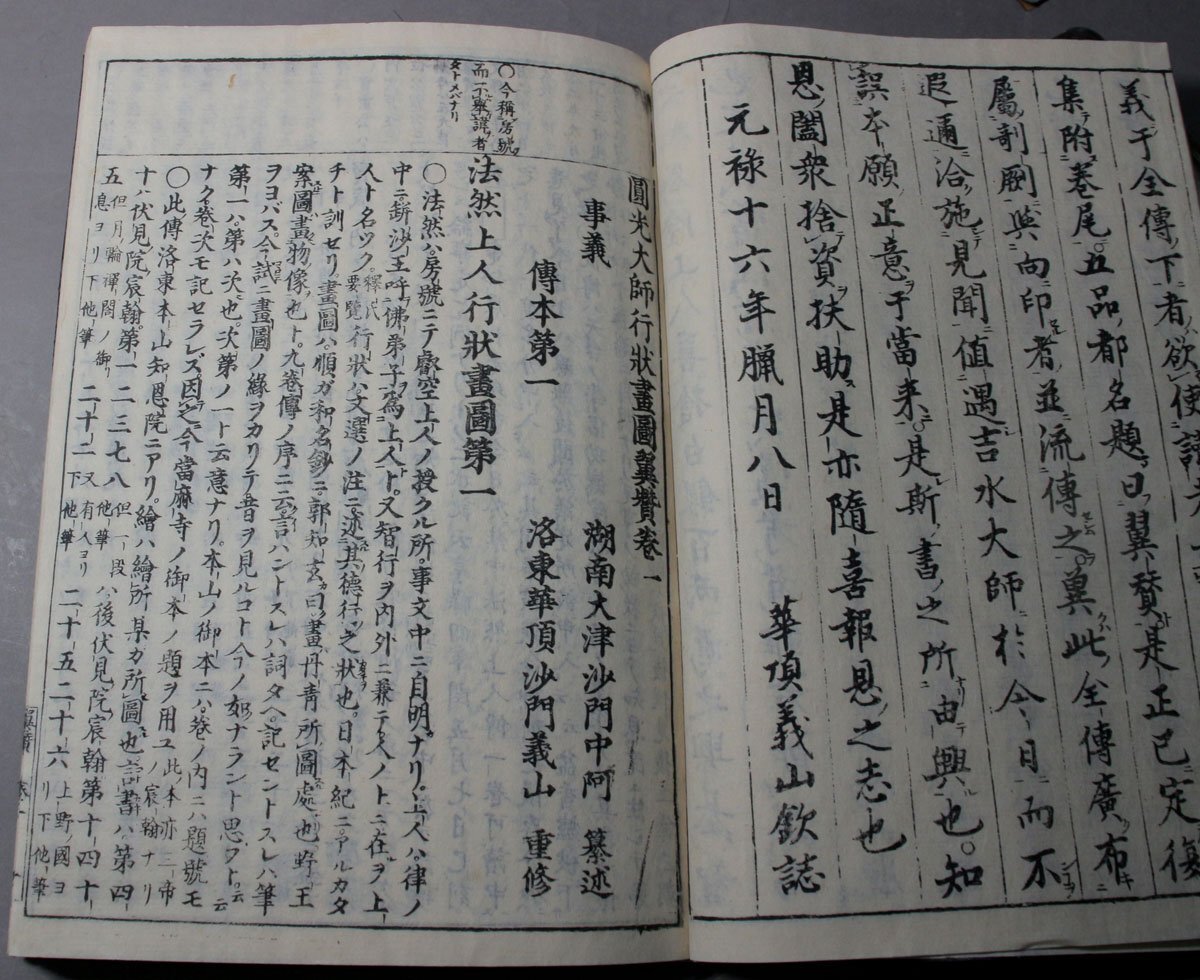 義于全傳下者欲使
集附巻尾五品都名題曰翼賛是正已定復
屬剞劂與向印者並流傳之兾此全傳廣布
遐邇洽施見聞値遇吉水大師於今日而不
誤本願正意于當来是斯書之所由興也知
恩闔衆捨資扶助是亦隨喜報恩之志也
元禄十六年臘月八日　華頂義山欽誌
圓光大師行狀畫圖翼賛巻一
事義　湖南大津沙門中阿　纂述
傳本第一　洛東華頂沙門義山　重修
〇今稱房號
而不擧諱者
タトメバナリ
法然上人行狀畫圖第一
〇法然ハ房號ニテ叡空上人ノ授クル所事文中ニ自明ナリ上人ハ律ノ
中ニ缾沙王呼佛弟子爲上人ト又智行ヲ内外ニ兼テ人ノ上ニ在ヲ上
人ト名ツク釋氏要覽行狀ハ文選ノ注ニ述其德行之狀也日本紀ニアルカタ
チト訓セリ畫圖ハ順ガ和名鈔ニ郭知玄曰畫丹青所圖處也野王
案圖畫物像也ト九巻傳ノ序ニ云言ハントスレハ詞タヘ記セントスレハ筆
ヲヨバス今試ニ畫圖ノ緣ヲカリテ昔ヲ見ルコト今ノ如ナラント思フト云云
第一ハ第ハ次也次第ノ一ト云意ナリ本山ノ御本ニハ巻ノ内ニハ題號モ
ナク巻次モ記セラレズ因之今當麻寺ノ御本ノ題ヲ用ユ此本亦三帝ノ宸翰ナリ
〇此傳洛東本山知恩院ニアリ繪ハ繪所某カ所圖也詞書ハ第四
十ハ伏見院宸翰第一二三七八但一段他筆ハ後伏見院宸翰第十四十
五但月輪禪閤ノ御息ヨリ下他筆二十二又有人ヨリ下他筆二十五二十六上野國ヨリ下他筆